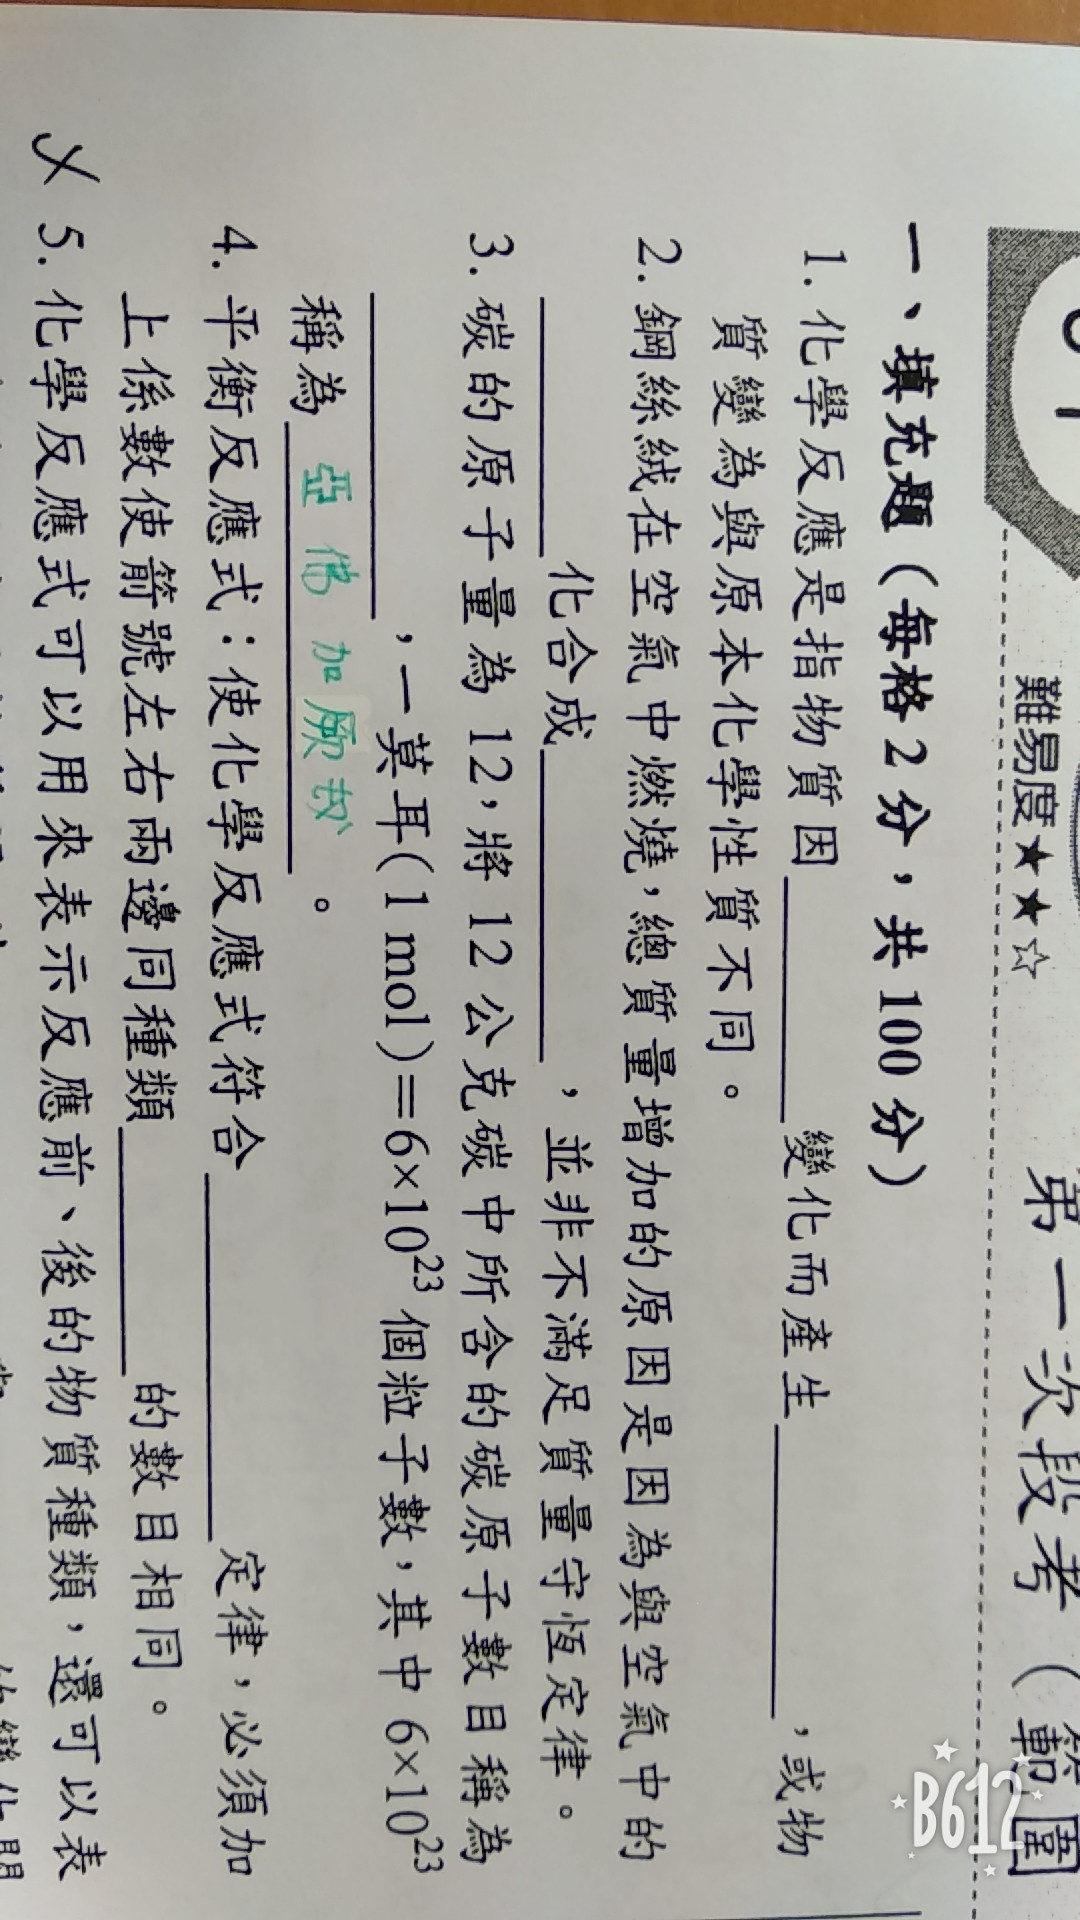 難易度★★☆
第一次段考(範圍
一、填充題(每格2分,共100分)
1. 化學反應是指物質因________變化而產生________,或物
質變為與原本化學性質不同。
2. 鋼絲絨在空氣中燃燒,總質量增加的原因是因為與空氣中的
________化合成________,並非不滿足質量守恆定律。
3. 碳的原子量為12,將12公克碳中所含的碳原子數目稱為
________,一莫耳(1 mol)=6×10²³個粒子數,其中6×10²³
稱為 亞佛加厥 。
4. 平衡反應式:使化學反應式符合________定律,必須加
上係數使箭號左右兩邊同種類________的數目相同。
5. 化學反應式可以用來表示反應前、後的物質種類,還可以表
B612